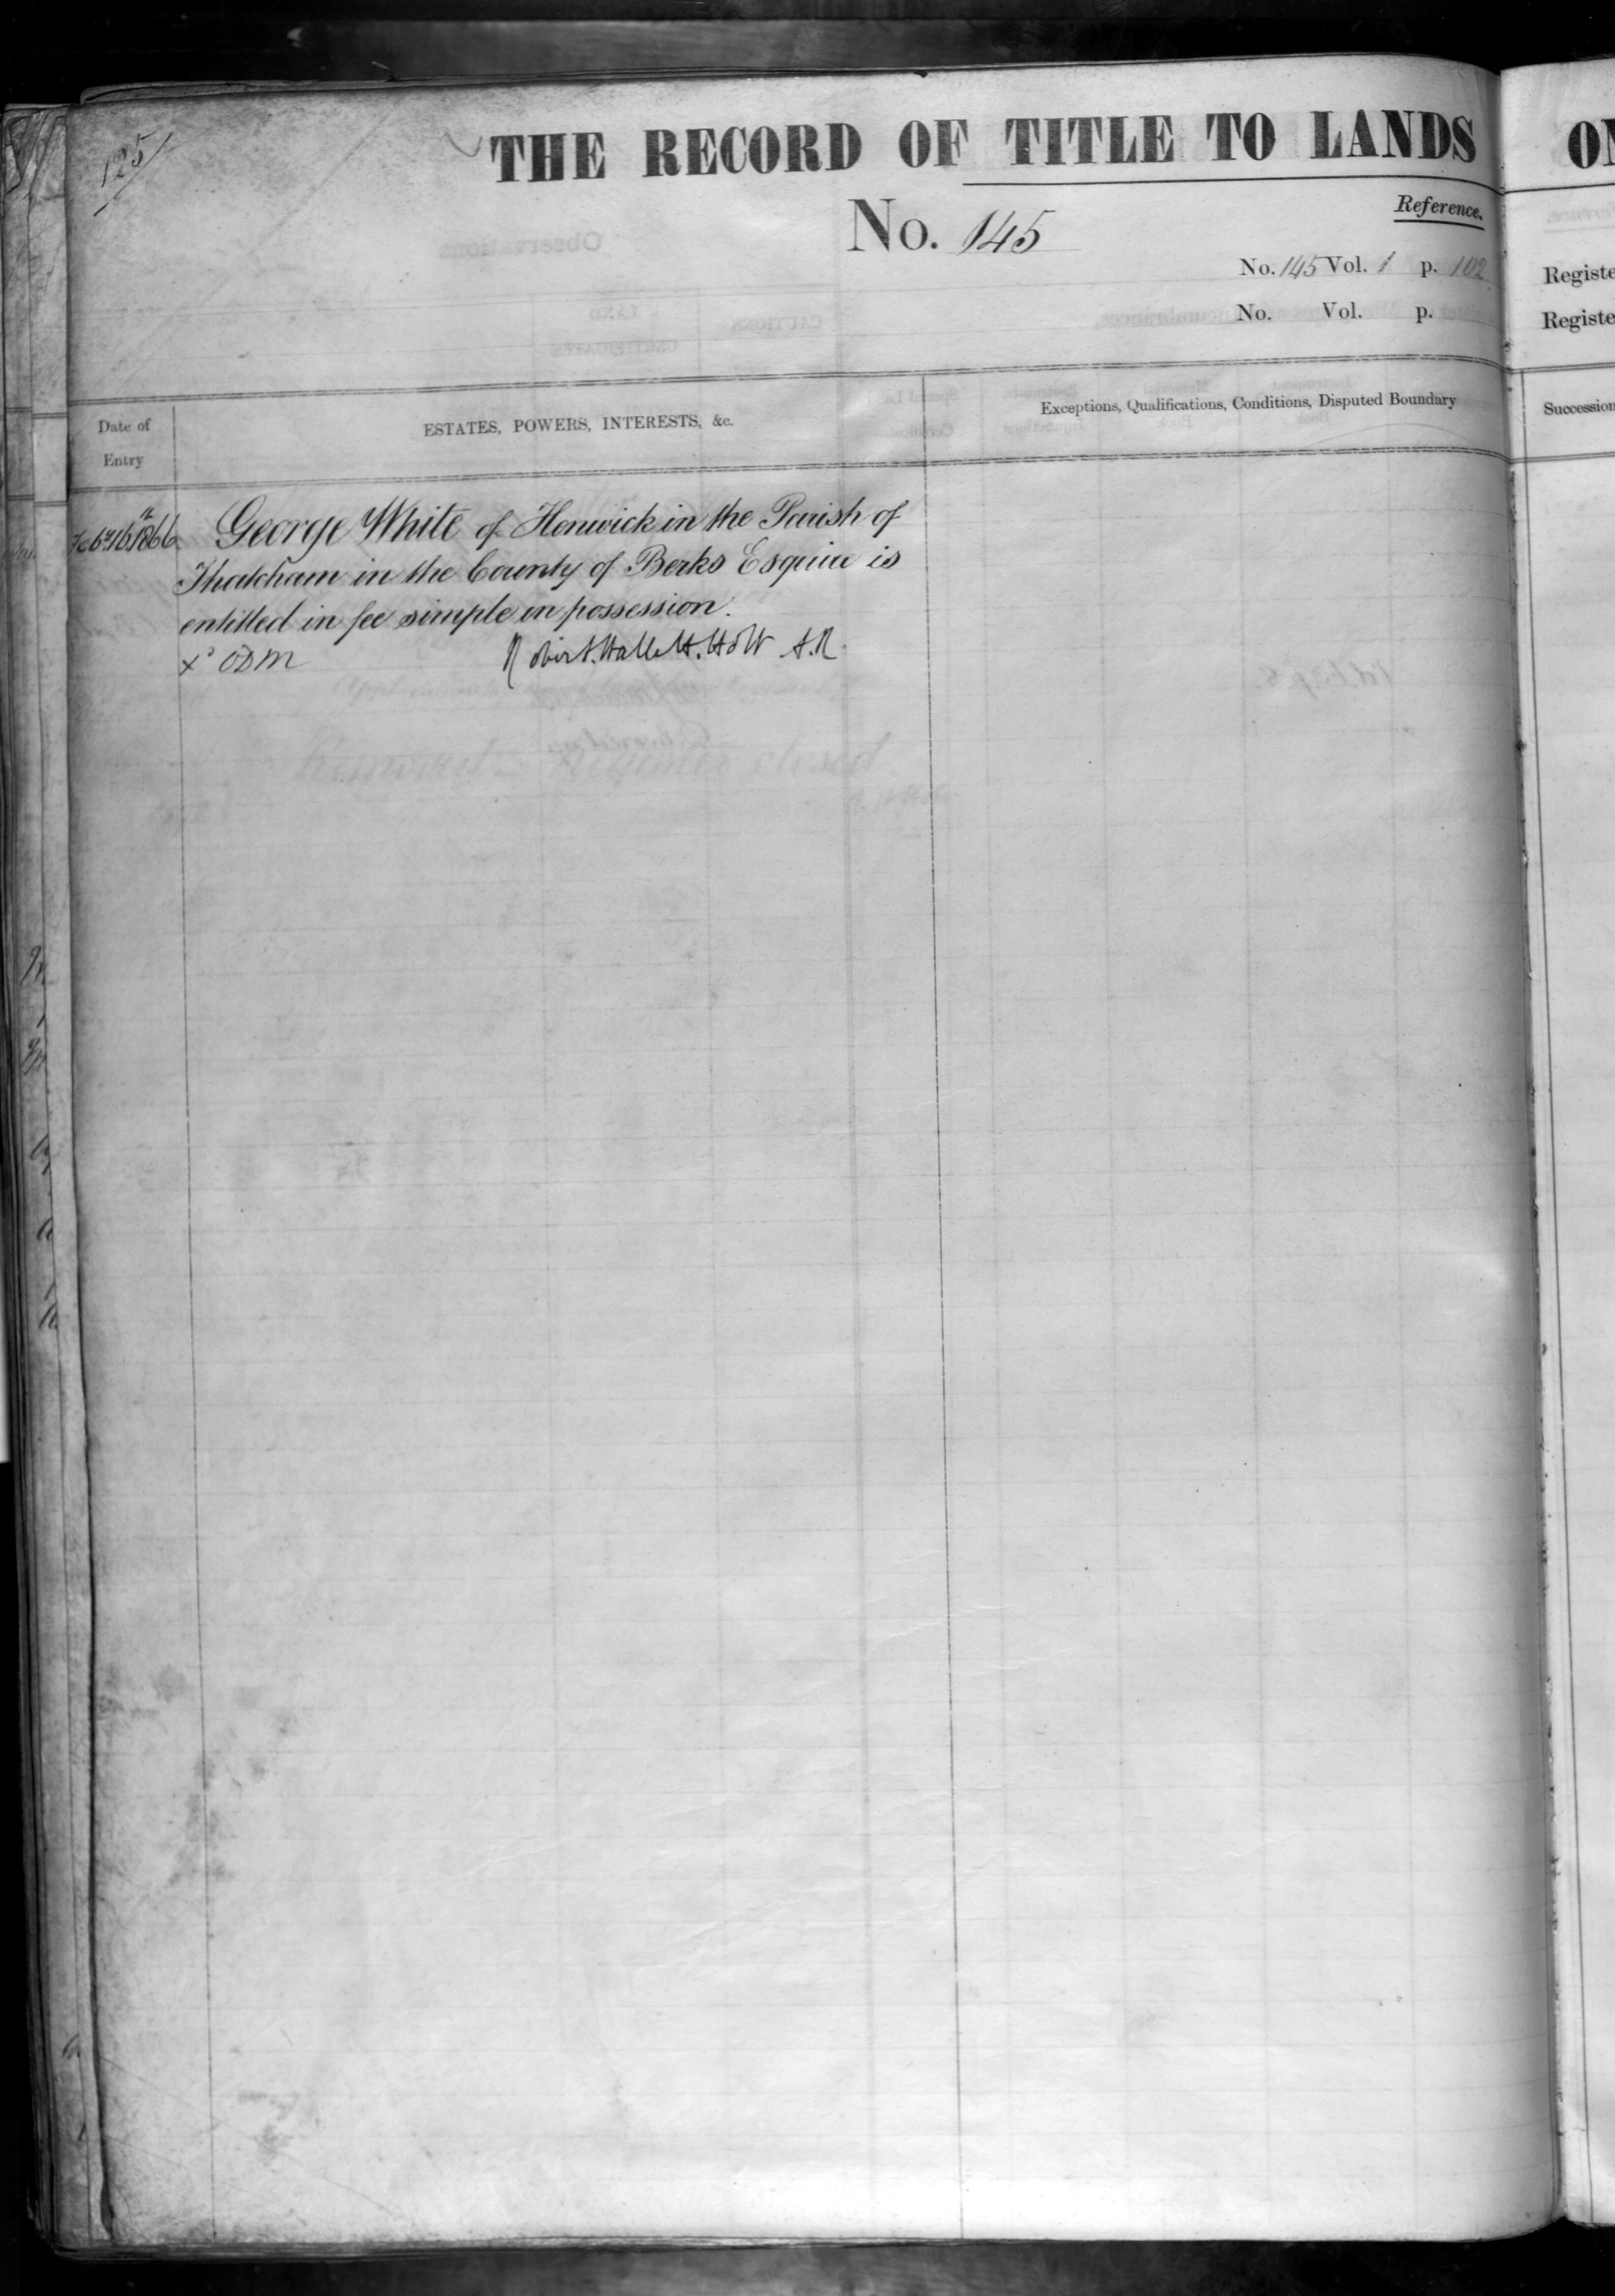 125
THE RECORD OF TITLE TO LANDS
No. 145
Reference.
No. 145 Vol. 1 p. 102
No. Vol. p.
Date of Entry
ESTATES, POWERS, INTERESTS, &c.
Exceptions, Qualifications, Conditions, Disputed Boundary
Feby 16th 1866
George White of Henwick in the Parish of
Thatcham in the County of Berks Esquire is
entitled in fee simple in possession.
Robert Hallett Holt A.R.
Removed - Register closed
Registe
Registe
Succession